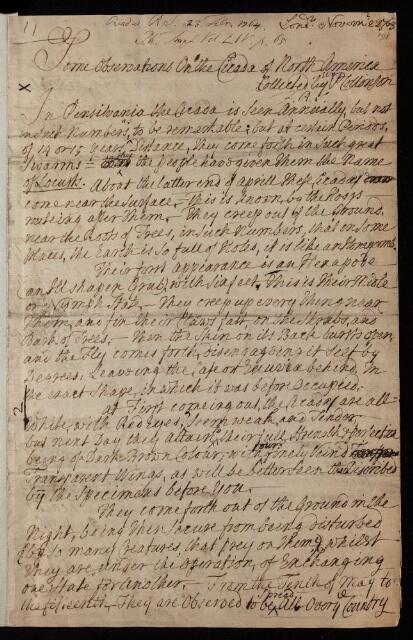 11
Read at R.S. 23 Febr. 1764.
Lond. Novem. 1763
Ph. Trans. Vol. LIV. p. 65
Some Observations On the Cicada of North America
Collected by P: Collinson
F.R.S.
X
In Pensilvania the Cicada is Seen Annually but not
in such Numbers, to be remarkable; but at certain Periods,
of 14 or 15 years, Distance, they come forth in Such great
Swarms = that the people have given them the Name
of Locusts. About the latter end of aprill these Cicadas
come near the Surface, = this is known, by the Hogs
rooteing after them, - They creep out of the Ground
near the Roots of Trees, in Such Numbers, that in Some
places, the Earth is so full of Holes, it is like an Honycomb.
Their first appearance is an Hexapode
an Ill shapen Grub, with Six feet, This is their Midle
or Nymph State, - They creep up every thing near
them, and fix their Claws fast, on the Shrubs, and
Bark of Trees, - then the Skin on its Back bursts open
and the Fly comes forth, disengageing it Self by
Degrees, Leaveing the Case or Exuviæ behind, in
the exact Shape, in which it was before Occupied.
2
at First comeing out, the Cicadas are all
White, with Red Eyes, Seem weak and Tender
but next Day they attain their full Strength & perfection
being of a Dark Brown Colour, with four finely veined
Transparent Wings, as will be better seen than Described
by the Specimens before You
They come forth out of the Ground in the
Night, being then Secure from being disturbed
by so many Creatures, that prey on them, whilst
they are, under the Operation, of Exchanging
one State for Another, - From the Tenth of May to
the fifteenth - They are Observed to be spread all Over the Country